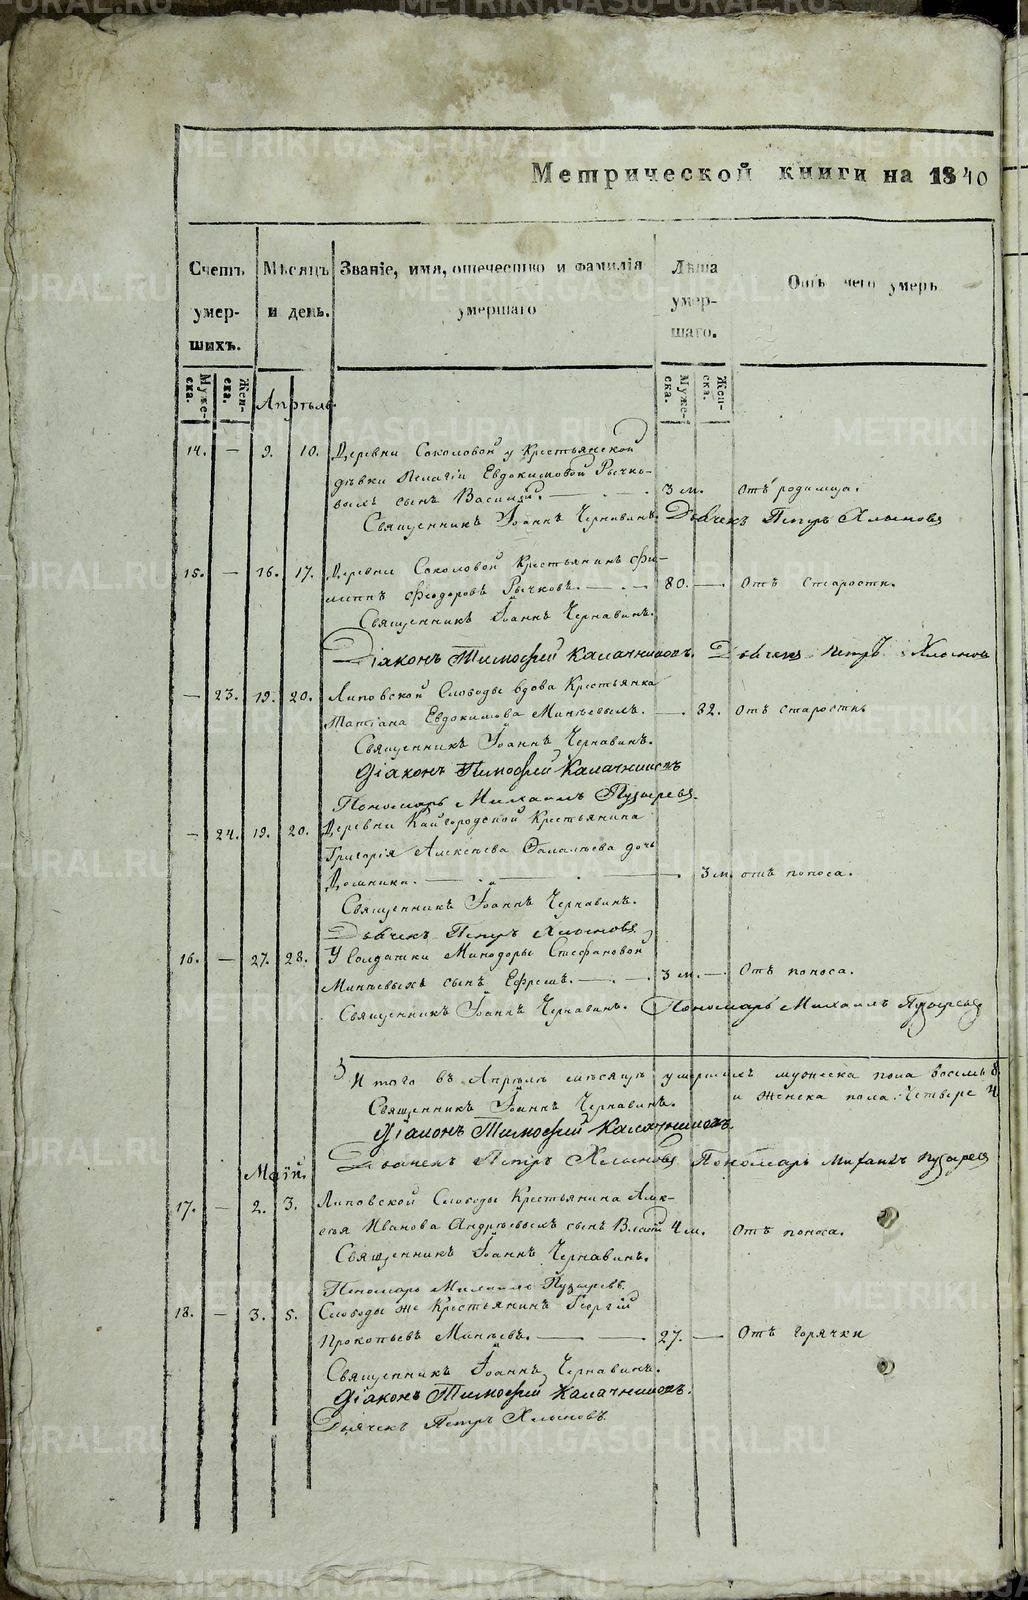 Метрической книги на 1840
Счетъ умер- шихъ.
Мѣсяцъ и день.
Званіе, имя, отечество и фамилія умершаго
Лѣта умер- шаго.
Отъ чего умеръ
Муже- ска.
Жен- ска.
Муже- ска.
Жен- ска.
Апрѣль.
14. — 9. 10. Деревни Соколовой у крестьянской
дѣвки Пелагіи Евдокимовой Рычко-
выхъ сынъ Василій. — 3 м. Отъ родимца.
Священникъ Іоаннъ Чернавинъ. Дьячекъ Петръ Хлыновъ
15. — 16. 17. Деревни Соколовой Крестьянинъ Фи-
липпъ Феодоровъ Рычковъ. — 80. — Отъ старости.
Священникъ Іоаннъ Чернавинъ.
Діаконъ Тимофей Калачниковъ. Дьячекъ Петръ Хлыновъ
— 23. 19. 20. Липовской Слободы вдова Крестьянка
Татіана Евдокимова Минѣевыхъ. — 82. Отъ старости
Священникъ Іоаннъ Чернавинъ.
Діаконъ Тимофей Калачниковъ
Пономарь Михаилъ Пузыревъ.
— 24. 19. 20. Деревни Кайгородской Крестьянина
Григорія Алексѣева дочь
Домника. — 3 м. отъ поноса.
Священникъ Іоаннъ Чернавинъ.
Дьячекъ Петръ Хлыновъ
16. — 27. 28. У Солдатки Минодоры Стефановой
Минѣевыхъ сынъ Ефремъ. — 3 м. — Отъ поноса.
Священникъ Іоаннъ Чернавинъ. Пономарь Михаилъ Пузыревъ
Итого въ Апрѣлѣ мѣсяцѣ умершихъ мужеска пола восемь 8
и женска пола. Четыре 4
Священникъ Іоаннъ Чернавинъ.
Діаконъ Тимофей Калачниковъ.
Дьячекъ Петръ Хлыновъ Пономарь Михаилъ Пузыревъ
Маій.
17. — 2. 3. Липовской Слободы Крестьянина Алек-
сѣя Иванова Андрѣевыхъ сынъ 4 м. Отъ поноса.
Священникъ Іоаннъ Чернавинъ.
Пономарь Михаилъ Пузыревъ.
18. — 3. 5. Слободы же Крестьянинъ Георгій
Прокопьевъ Минѣевъ. — 27. — Отъ горячки
Священникъ Іоаннъ Чернавинъ.
Діаконъ Тимофей Калачниковъ.
Дьячекъ Петръ Хлыновъ